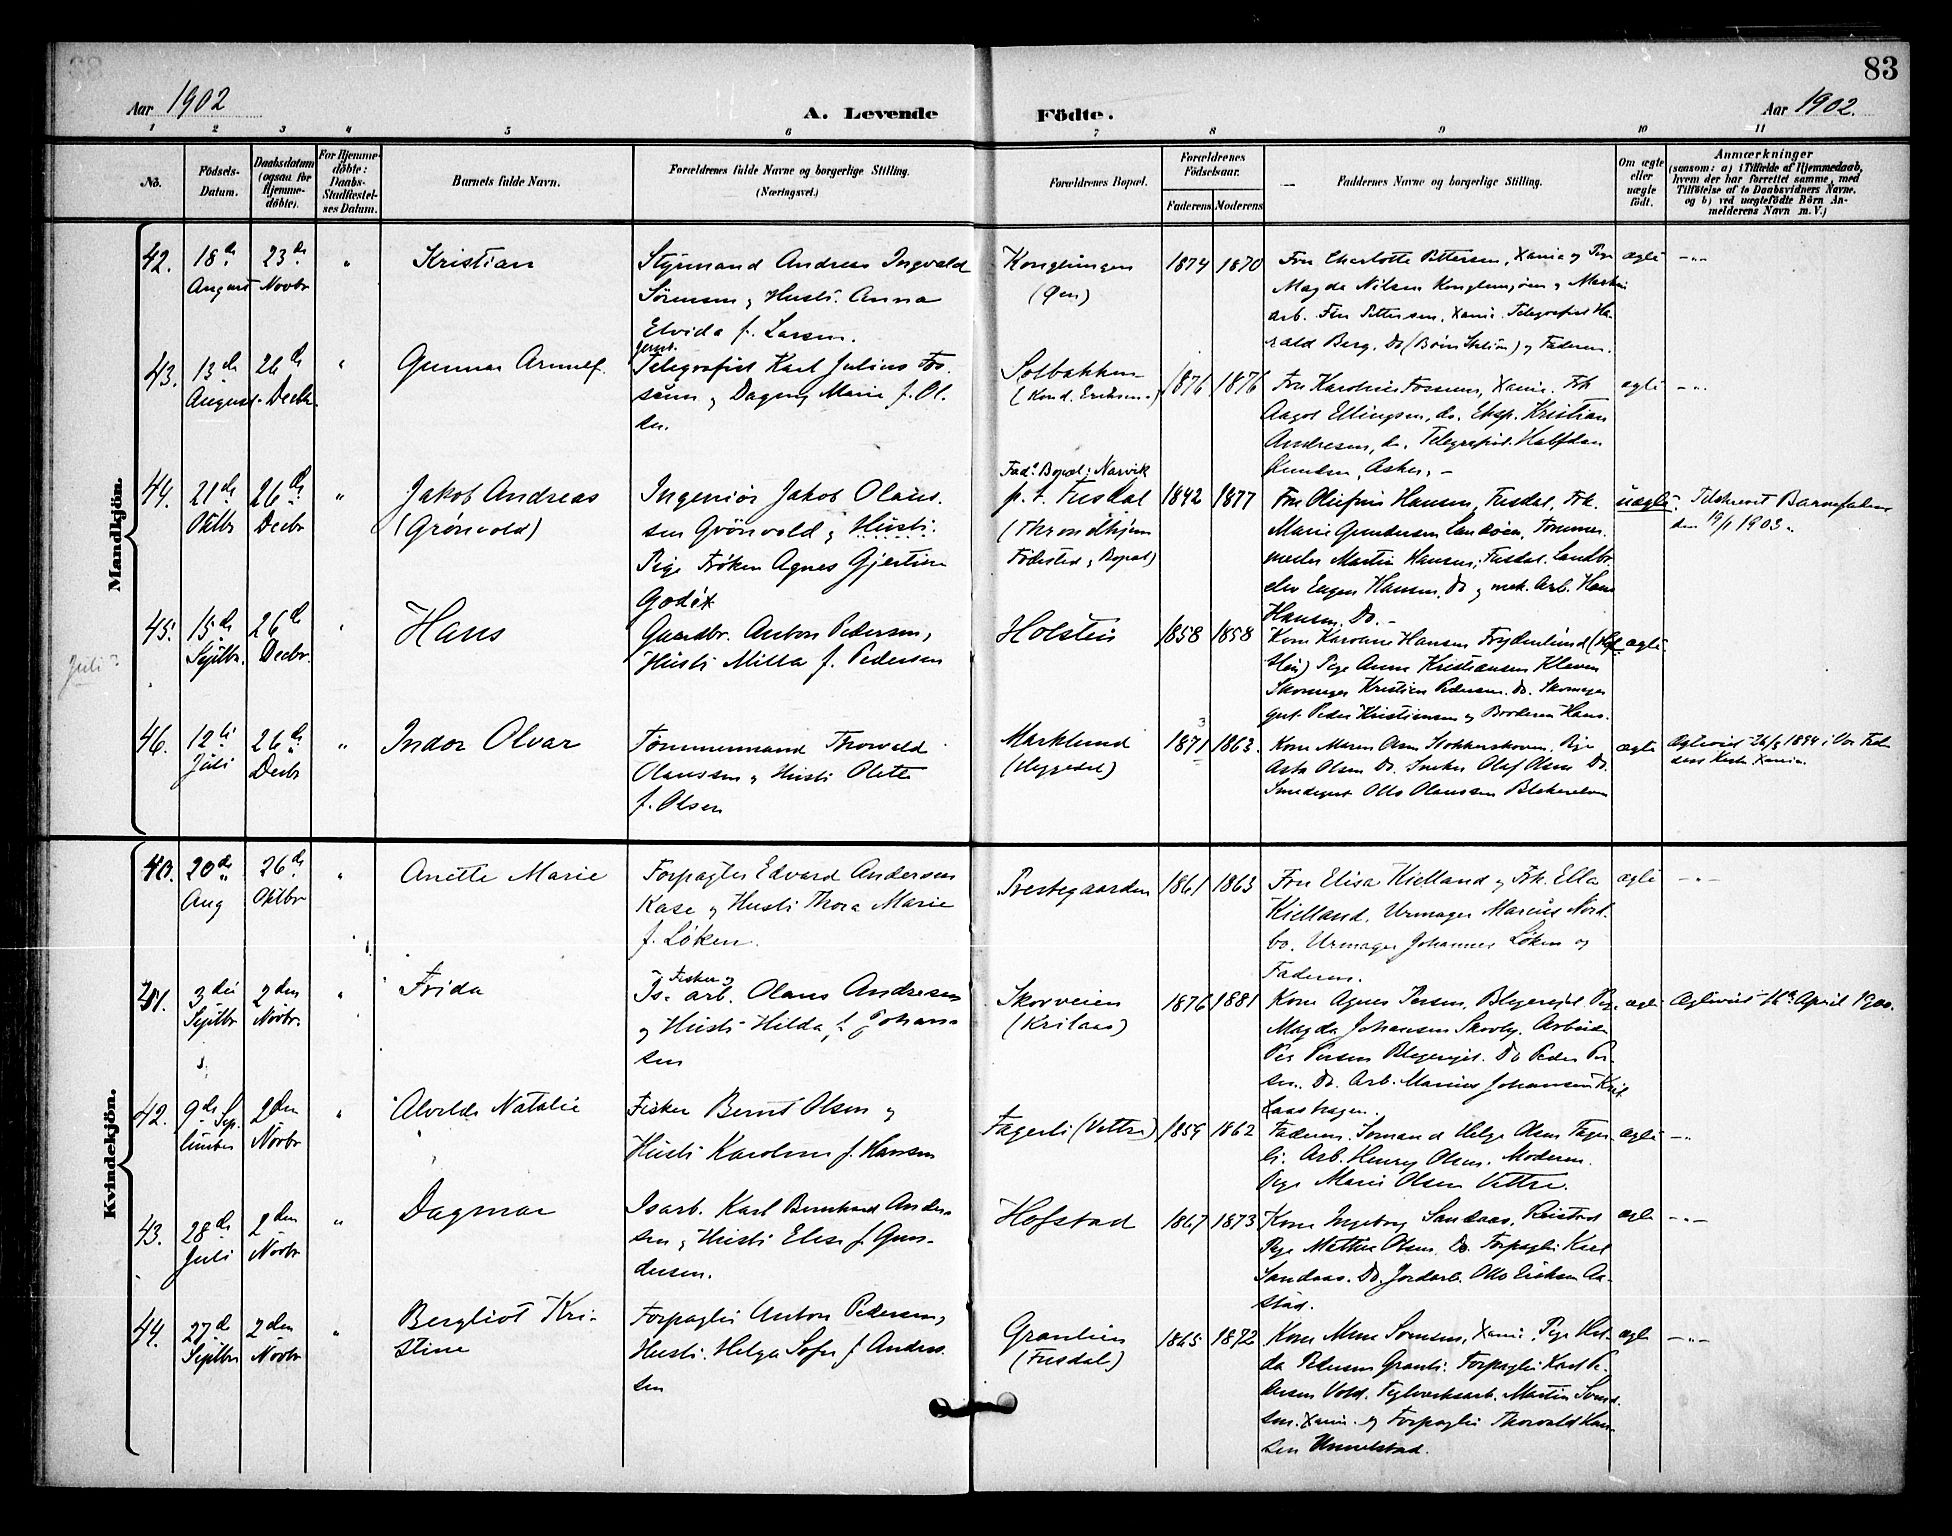 83
Aar 1902
A. Levende Födte.
Aar 1902.
1 2 3 4 5 6 7 8 9 10 11
No.
Födsels-
Datum.
Daabsdatum
(ogsaa for
Hjemme-
döbte).
For Hjemme-
döbte:
Daabs-
Stadfæstel-
ses Datum.
Barnets fulde Navn.
Forældrenes fulde Navne og borgerlige Stilling.
(Næringsvei.)
Forældrenes Bopæl.
Forældrenes
Födselsaar.
Faderens Moderens
Faddernes Navne og borgerlige Stilling.
Om ægte
eller
uægte
födt.
Anmærkninger
(saasom: a) i Tilfælde af Hjemmedaab,
hvem der har forrettet samme, med
Tilföielse af to Daabsvidners Navne,
og b) ved uægtefödte Börn An-
melderens Navn m. V.)
Mandkjön.
42.
18de
August
23de
Novbr
"
Kristian
Styrmand Andreas Ingvald
Sørensen og Hustr. Anna
Elvida f. Larsen.
Konglungen
(Øen)
1874 1870
Fru Charlotte Pettersen, Xania og Pige
Magda Nilsen Konglungøen og Maskin
arb. Pettersen, Xania. Telegrafist Ha-
rald Berg, Do og Faderen.
ægte
-"-
43.
13de
August
26de
Decbr.
"
Gunnar Arnulf
Telegrafist Karl Julius Fos-
sum og Dagny Marie f. Ol-
sen.
Solbakken
(Kond. Eriksen.)
1876 1876
Fru Karoline Fossum, Xania. Frk
Aagot Ellingsen, do. Eksp. Kristian
Andresen, do. Telegrafist Halfdan
Knudsen, Asker. -
ægte
-"-
44.
21de
Oktbr
26de
Decbr
"
Jakob Andreas
(Grönvold)
Ingeniör Jakob Olaus-
sen Grönvold og Hustr.
Pige Frøken Agnes Gjertine
Godøt
Fad. Bopæl: Narvik
p. t. Fusdal
(Throndhjem
Fødested og Bopæl)
1842 1877
Fru Olefine Hansen, Fusdal, Frk.
Marie Gundersen Landøen, Tømmer-
mester Martin Hansen, Fusdal. Landbr.
elev Eugen Hansen, Do og mek. Arb. Hans
Hansen, Do. -
uægte.
Tilskrevet Barnefaderen
den 19/1 1903.
45.
15de
Septbr.
Juli?
26de
Decbr.
Hans
Gaardbr. Anton Pedersen,
Hustr. Milla f. Pedersen
Holstein
1858 1858
Kone Karoline Hansen Frydenlund (Hol-
stein) Pige Anna Kristiansen Kleven
Skomager Kristian Pedersen Do. Skomager
gut Peder Kristiansen og Broderen Hans.
ægte
46.
12te
Juli
26de
Decbr
"
Indor Olvar
Tømmermand Thorvald
Olaussen og Hustr. Olete
f. Olsen
Marklund
(Heggedal)
1871 3 1863
Kone Maren Olsen Stokkerskoven, Pige
Asta Olsen Do. Snekker Olaf Olsen Do.
Smedegut Otto Olaussen Blakerelven
ægte
Ægteviet 26/8 1894 i Vor Frel-
sers Kirke Xania.
Kvindekjön.
40.
20de
Aug
26de
Oktbr
"
Anette Marie
Forpagter Edvard Andersen
Kase og Hustr. Thora Marie
f. Løken.
Prestegaarden
1861 1863
Fru Elisa Kielland og Frk. Ella
Kielland. Urmager Marius Nord-
bo. Urmager Johannes Løken og
Faderen.
ægte
-"-
41.
3die
Septbr
2den
Novbr.
"
Frida
Fisker og
Is-arb. Olaus Andresen
og Hustr. Hilda f. Johan-
sen
Skorveien
(Krilaas)
1876 1881
Kone Agnes Persen, Blegerejet Pige
Magda Johansen Skovly. Arbeider
Per Persen Blegerejet. Do Peder Per-
sen. Do. Arb. Marius Johansen Kril-
laashagen.
ægte
Ægteviet 16de April 1900.
42.
9de Sep-
tember
2den
Novbr
"
Alvilde Natalie
Fisker Bernt Olsen og
Hustr. Karoline f. Hansen
Fagerli (Vettre)
1859 1862
Faderen. Sømand Helge Olsen Fager-
li. Arb. Henry Olsen. Moderen.
Pige Marie Olsen Vettre.
ægte
-"-
43.
28de
Juli
2den
Novbr
"
Dagmar
Isarb. Karl Bernhard Ander-
sen og Hustr. Elise f. Gun-
dersen.
Hofstad
1867 1873
Kone Ingeborg Sandaas,
Pige Mathea Olsen, Do. Forpagter Karl
Sandaas. Do. Jordarb. Otto Eriksen Aa-
stad.
ægte
-"-
44.
27de
Septbr
2den
Novbr
"
Bergliot Kri-
stine
Forpagter Anton Pedersen,
Hustr. Helga Sofie f. Anders-
sen
Granlien
(Fusdal)
1865 1872
Kone Sørensen, Xania. Pige Hul-
da Pedersen Granli. Forpagter Karl Pe-
dersen Vold. Teglverksarb. Martin Svend-
sen. Xania. og Forpagter Thorvald Han-
sen Unnelstad.
ægte
-"-